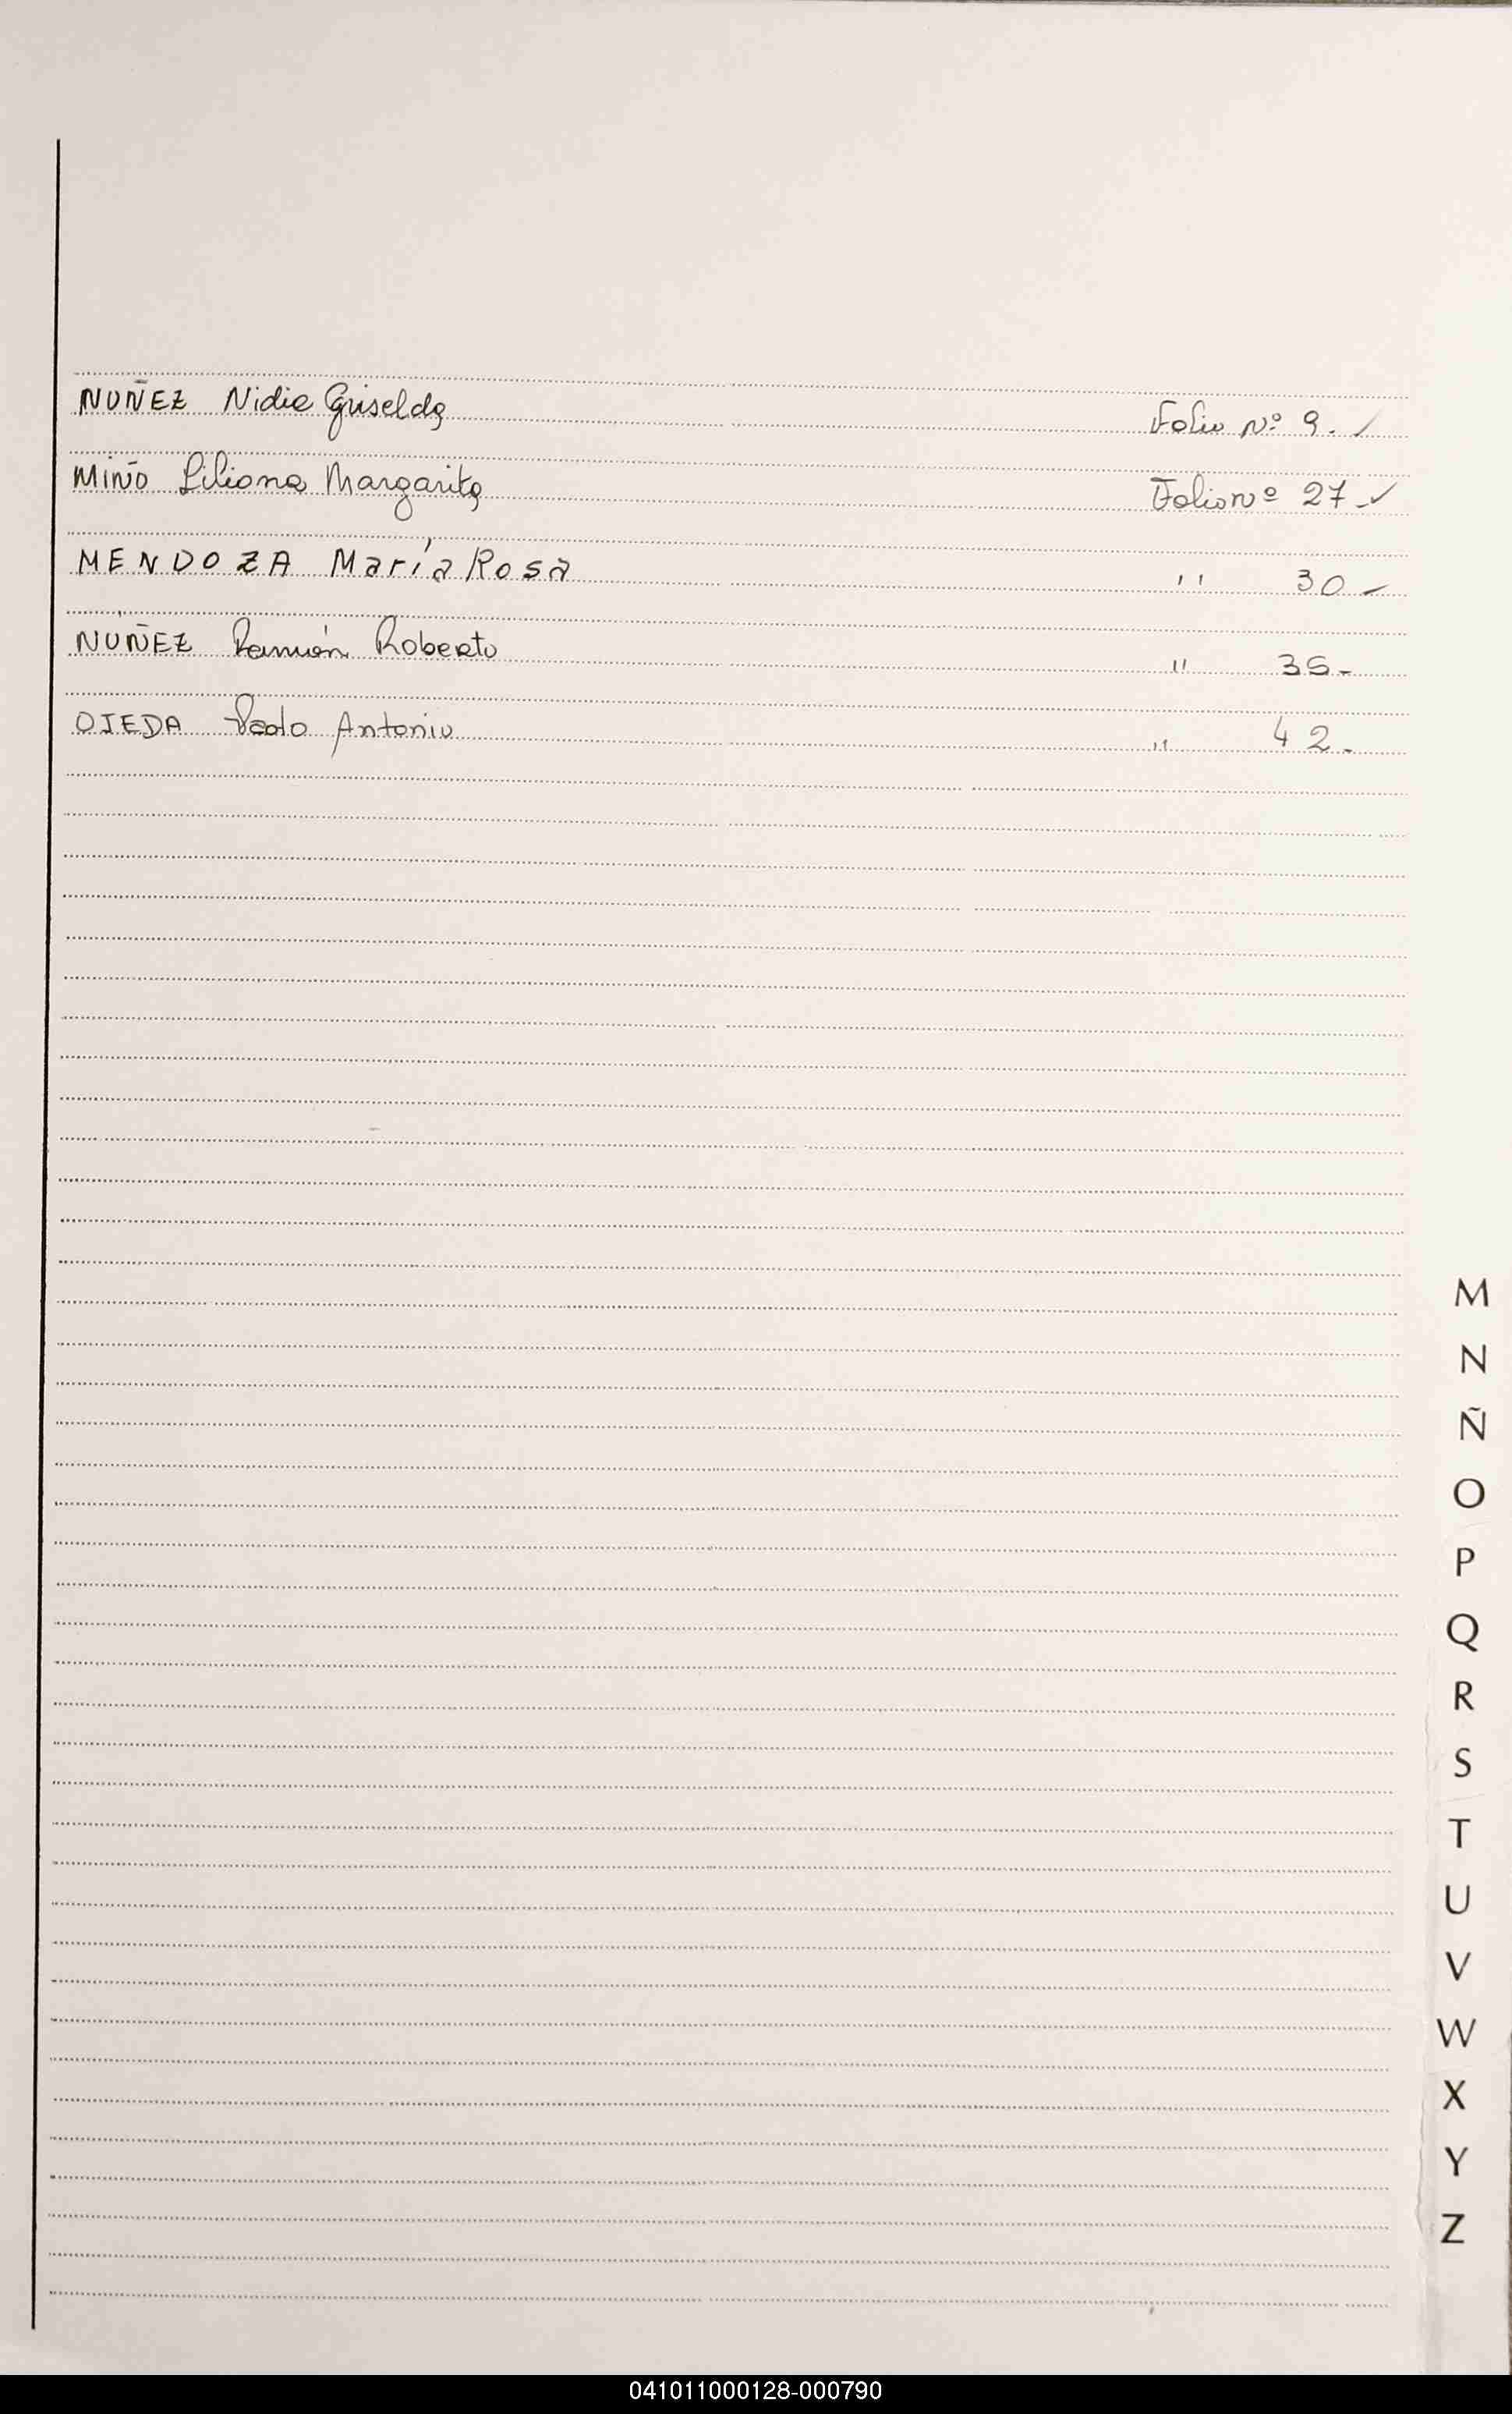 NUÑEZ Nidia Griselda Folio Nº 9. ✓
MIÑO Liliana Margarita Folio nº 27 - ✓
MENDOZA María Rosa '' 30 -
NÚÑEZ Ramón Roberto '' 35 -
OJEDA Antonio '' 42 -
M
N
Ñ
O
P
Q
R
S
T
U
V
W
X
Y
Z
041011000128-000790